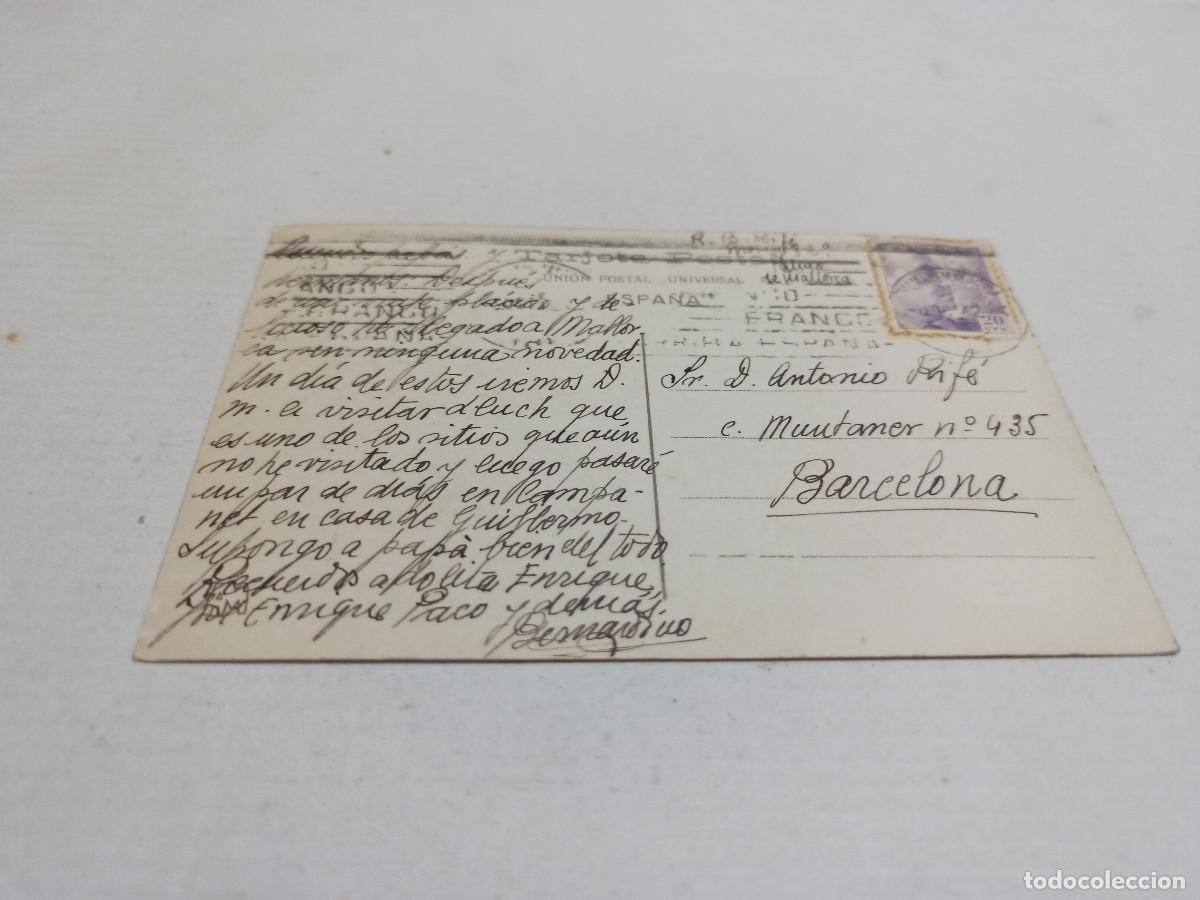 y
Después
de un viaje placido y de
ha llegado a Mallor
ca sin ninguna novedad.
Un día de estos iremos D.
m. a visitar Lluch que
es uno de los sitios que aún
no he visitado y luego pasaré
un par de días en Campa-
net en casa de Guillermo.
Supongo a papà bien del todo
Recuerdos a Lolita Enrique,
Enrique Paco y demás
Bernardino
Tarjeta Postal
UNIÓN POSTAL UNIVERSAL
ESPAÑA
R. B. Rifé
Palma
de Mallorca
FRANCO
FRANCO
ARRIBA ESPAÑA
20
Sr. D. Antonio Rifé
c. Muntaner nº 435
Barcelona
todocoleccion